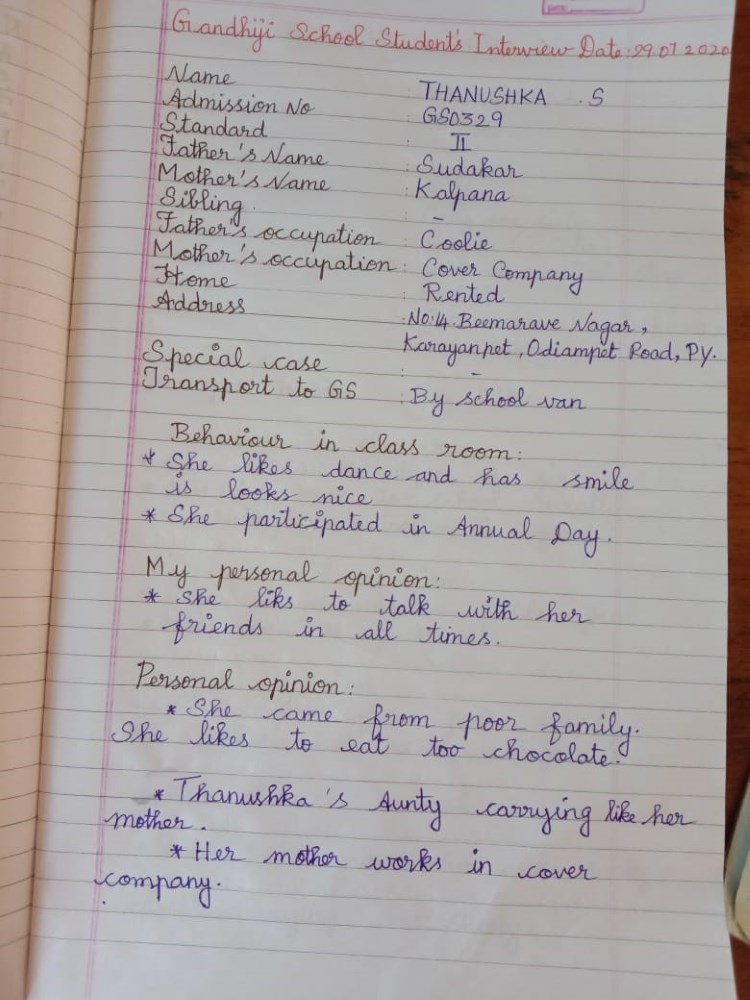 Gandhiji School Student's Interview Date: 29.07.2020
Name THANUSHKA . S
Admission No GS0329
Standard : II
Father's Name : Sudakar
Mother's Name : Kalpana
Sibling. -
Father's occupation : Coolie
Mother's occupation : Cover Company
Home : Rented
Address : No:14. Beemarave Nagar,
Karayanpet, Odiampet Road, PY.
Special case : -
Transport to GS : By school van
Behaviour in class room:
* She likes dance and has smile
is looks nice
* She participated in Annual Day.
My personal opinion:
* She liks to talk with her
friends in all times.
Personal opinion:
* She came from poor family.
She likes to eat too chocolate.
* Thanushka's Aunty carrying like her
mother.
* Her mother works in cover
company.